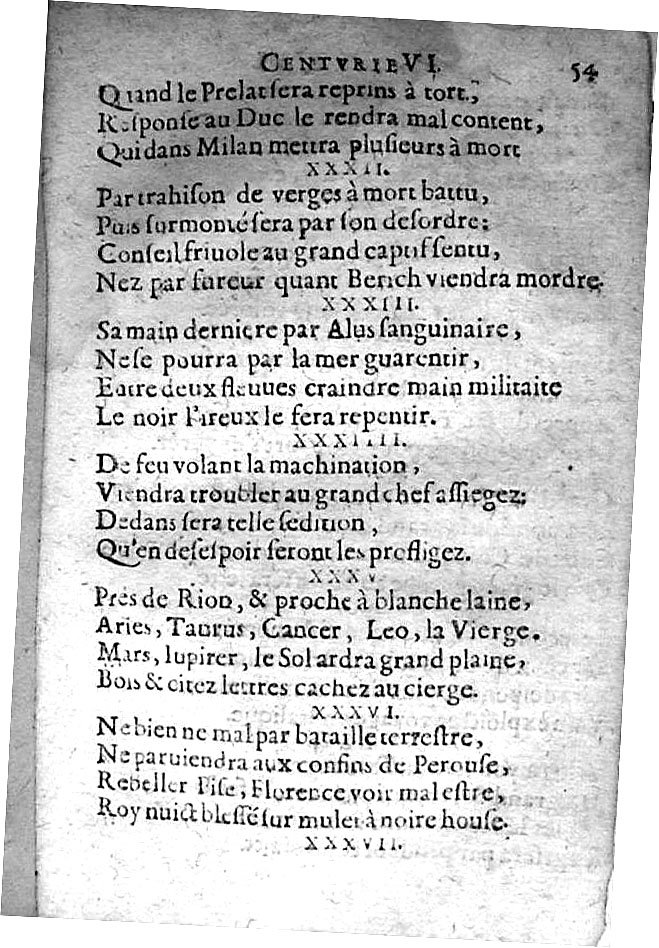 CENTVRIE VI. 54
Quand le Prelat ſera reprins à tort,
Reſponſe au Duc le rendra mal content,
Qui dans Milan mettra pluſieurs à mort
XXXII.
Par trahiſon de verges à mort battu,
Puis ſurmonté ſera par ſon deſordre:
Conſeil friuole au grand captif ſentu,
Nez par fureur quant Berich viendra mordre.
XXXIII.
Sa main derniere par Alus ſanguinaire,
Ne ſe pourra par la mer guarentir,
Entre deux fleuues craindre main militaire
Le noir l'ireux le fera repentir.
XXXIIII.
De feu volant la machination,
Viendra troubler au grand chef aſſiegez:
Dedans ſera telle ſedition,
Qu'en deſeſpoir ſeront les profligez.
XXXV.
Prés de Rion, & proche à blanche laine,
Aries, Taurus, Cancer, Leo, la Vierge.
Mars, Iupiter, le Sol ardra grand plaine,
Bois & citez lettres cachez au cierge.
XXXVI.
Ne bien ne mal par bataille terreſtre,
Ne paruiendra aux confins de Perouſe,
Rebeller Piſe, Florence voir mal eſtre,
Roy nuict bleſſé ſur mulet à noire houſe.
XXXVII.